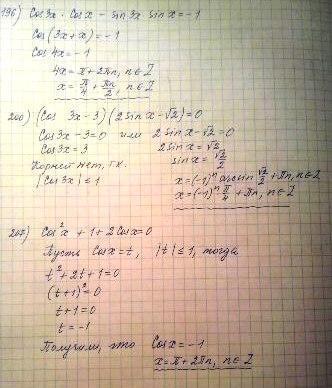 196) Cos3x · Cosx - sin3x sinx = -1
Cos(3x+x) = -1
Cos4x = -1
4x = π + 2πn, n∈Z
x = π/4 + πn/2, n∈Z
200) (Cos 3x - 3)(2sinx - √2) = 0
Cos3x - 3 = 0 или 2sinx - √2 = 0
Cos3x = 3 2sinx = √2
Корней нет, т.к. sinx = √2/2
|Cos3x| ≤ 1 x = (-1)ⁿ arcsin √2/2 + πn, n∈Z
x = (-1)ⁿ π/4 + πn, n∈Z
207) Cos²x + 1 + 2Cosx = 0
Пусть Cosx = t, |t| ≤ 1, тогда
t² + 2t + 1 = 0
(t+1)² = 0
t + 1 = 0
t = -1
Получили, что Cosx = -1
x = π + 2πn, n∈Z